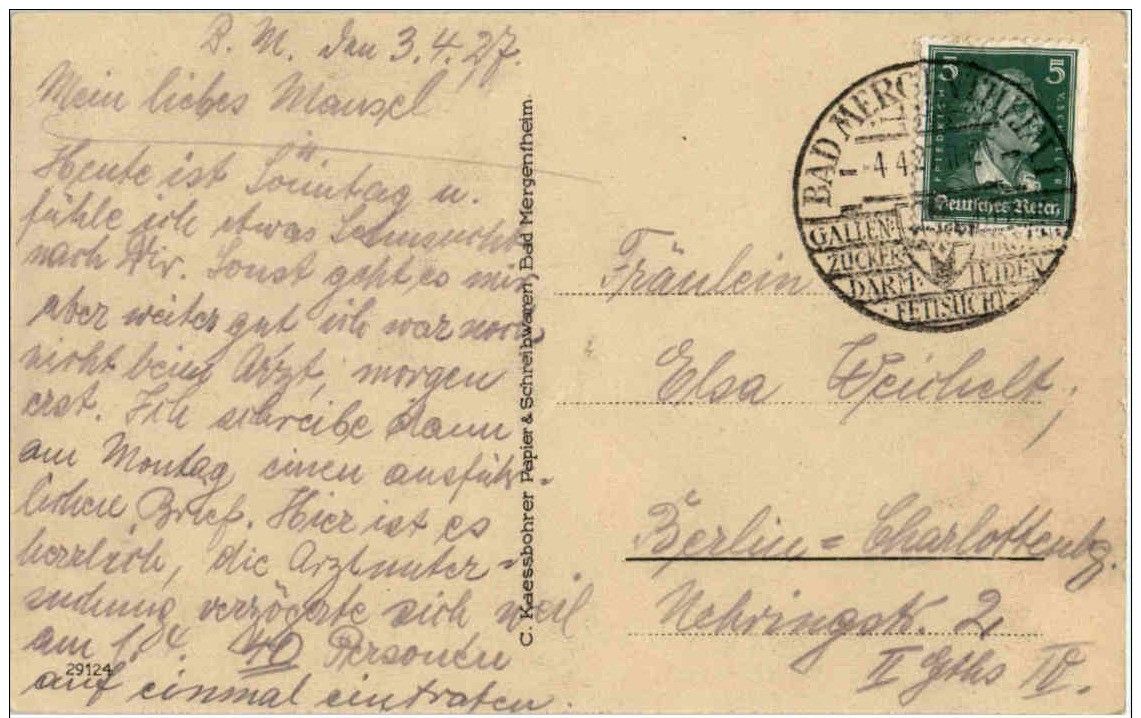 B. M. den 3.4.27.
Mein liebes Mausel
Heute ist Sonntag u.
fühle ich etwas Sehnsucht
nach Dir. Sonst geht es mir
aber weiter gut ich war noch
nicht beim Arzt, morgen
erst. Ich schreibe dann
am Montag einen ausführ-
lichen Brief. Hier ist es
herrlich, die Arztunter-
suchung verzögerte sich weil
am 1.4. 40 Personen
auf einmal eintraten.
29124
C. Kaessbohrer Papier & Schreibwaren, Bad Mergentheim.
5 5
Deutsches Reich
BAD MERGENTHEIM
-4 4 2
GALLEN-
ZUCKER-
DARM- LEIDEN
· FETTSUCHT ·
Fräulein
Elsa Weichelt,
Berlin=Charlottenbg.
Nehringstr. 2
II Gths IV.